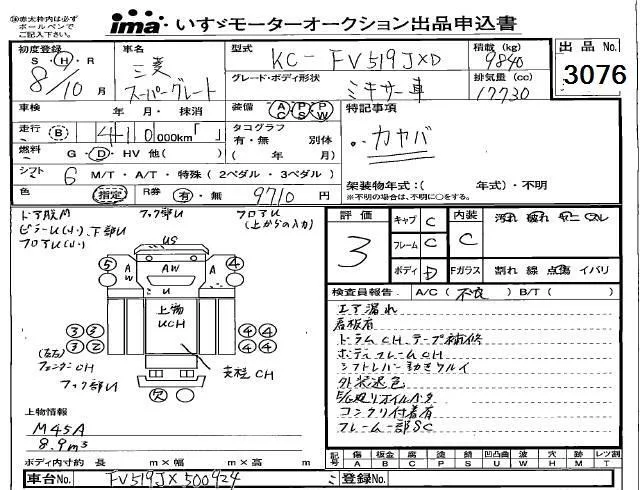 ㊟赤太枠内は必ずボールペンでご記入下さい。
ima いすゞモーターオークション出品申込書
初度登録 S・H・R 8/10 月
車名 三菱 スーパーグレート
型式 KC-FV519JXD
積載(kg) 9840
出品No. 3076
グレード・ボディ形状 ミキサー車
排気量(cc) 12730
車検 年・月・抹消
装備 AC PS PW
特記事項
カヤバ
走行 B 410,000km「 」
タコグラフ 有・無 別体 ( 年 月)
燃料 G・D・HV 他( )
シフト 6 M/T・A/T・特殊(2ペダル・3ペダル)
架装物年式:( 年式)・不明
※不明の場合は、不明に○をする。
色 指定
R券 有・無 9710 円
ドア内M フック部U フロアU
ピラーU(H)、下部U (上からの入力)
フロアU(H)
US
5 A AW A 4
W W
U
上物
UCH
3 3 4 4
3 2 4 4
(左右)
フェンダーCH
フック部U
支柱CH
欠
評価 3
キャブ C
フレーム C
ボディ D
内装 C
汚れ 破れ ヤニ スレ
Fガラス 割れ 線 点傷 イバリ
検査員報告 A/C(不良) B/T( )
エア漏れ
看板有
ドラムCH、テープ補修
ボディフレームCH
シフトレバー動きワルイ
外装退色
コンクリ付着有
フレーム部SC
上物情報
M45A
8.9m³
ボディ内寸約 長 m×幅 m×高 m
記号 傷 A 板金 B 腐 C 塗 P 錆 S 凹凸曲 U 波 W 穴 H 跡 M ミト割 D レツ割 T
車台No. FV519JX500924
登録No.